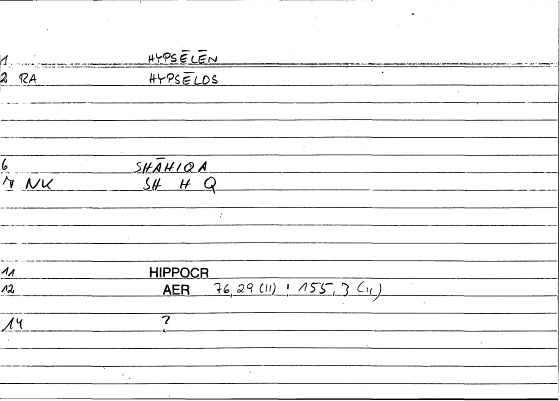 1 HYPSĒLĒN
2 RA HYPSĒLOS
6 SHĀHIQA
7 NK SH H Q
11 HIPPOCR
12 AER 76,29 (II) ; 155,3 (II)
14 ?